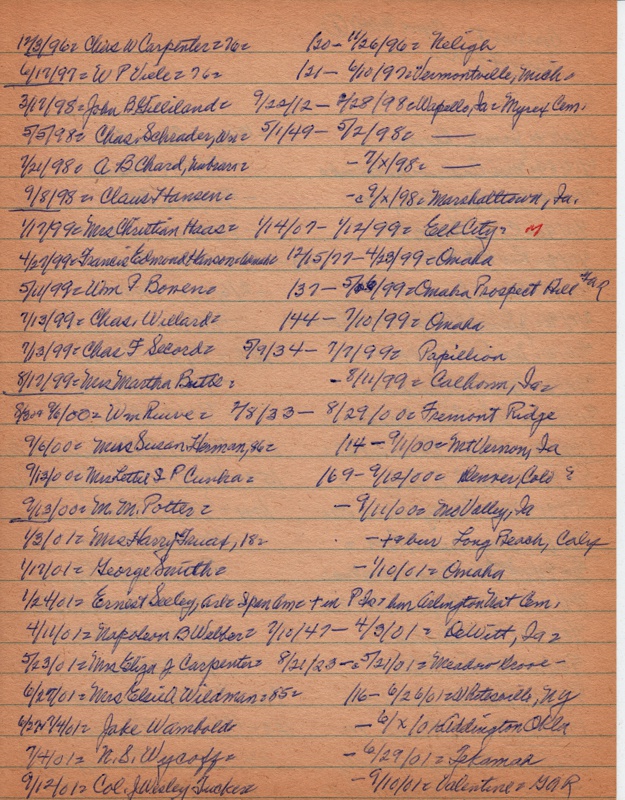 12/3/96= Chas W Carpenter=76= 120- 11/26/96= Neligh
6/17/97= W P Viele=76= 121- 6/10/97=Vermontville, Mich=
3/17/98=John B Gilliland= 9/22/12- 2/28/98=Wapello, Ia= Myrex Cem.
5/5/98= Chas. Schrader, Wn= 5/1/49- 5/2/98= —
7/21/98= A B Chard, - 7/x/98= —
9/8/98= Claus Hansen= -c 9/x/98= Marshalltown, Ia.
1/17/99=Mrs Christian Haas= 1/14/07- 1/12/99= Elk City=
4/27/99=Francis Edmond Hanson= 12/15/77-4/23/99=Omaha
5/11/99=Wm P Bowen= 137- /99=Omaha Prospect Hill GAR
7/13/99= Chas. Willard= 144- 7/10/99= Omaha
7/13/99=Chas F Secord= 5/9/34- 7/7/99= Papillion
8/17/99=Mrs Martha Butler= - 8/11/99= Calhoun, Ia=
9/6/00= Wm 7/8/33- 8/29/00=Fremont Ridge
9/6/00= Mrs Susan Herman, 86= 114-9/1/00=Mt Vernon, Ia
9/13/00=Mrs Lettie 169-9/12/00= Denver, Colo
9/13/00= M. M. Potter= - 9/11/00= Mo Valley, Ia
1/3/01= Mrs Harry Truax, 18= -+& bur Long Beach, Calif
1/17/01= George Smith= - 1/10/01= Omaha
1/24/01= Ernest Seeley, Span Am= + in P Is= bur Arlington Nat Cem.
4/11/01=Napoleon B Webber= 7/10/47- 4/3/01= DeWitt, Ia=
5/23/01=Mrs Eliza J Carpenter= 8/21/23-c5/21/01=Meadow Grove-
6/27/01= Mrs Elsie A Wildman=85= 116- 6/26/01=Whitesville, NY
7/4/01= Jake Wambold= - 6/x/01= Okla
7/4/01= N. S. Wycoff= - 6/29/01= Tekamah
9/12/01= Col. J Wesley Tucker= - 9/10/01= Valentine= GAR